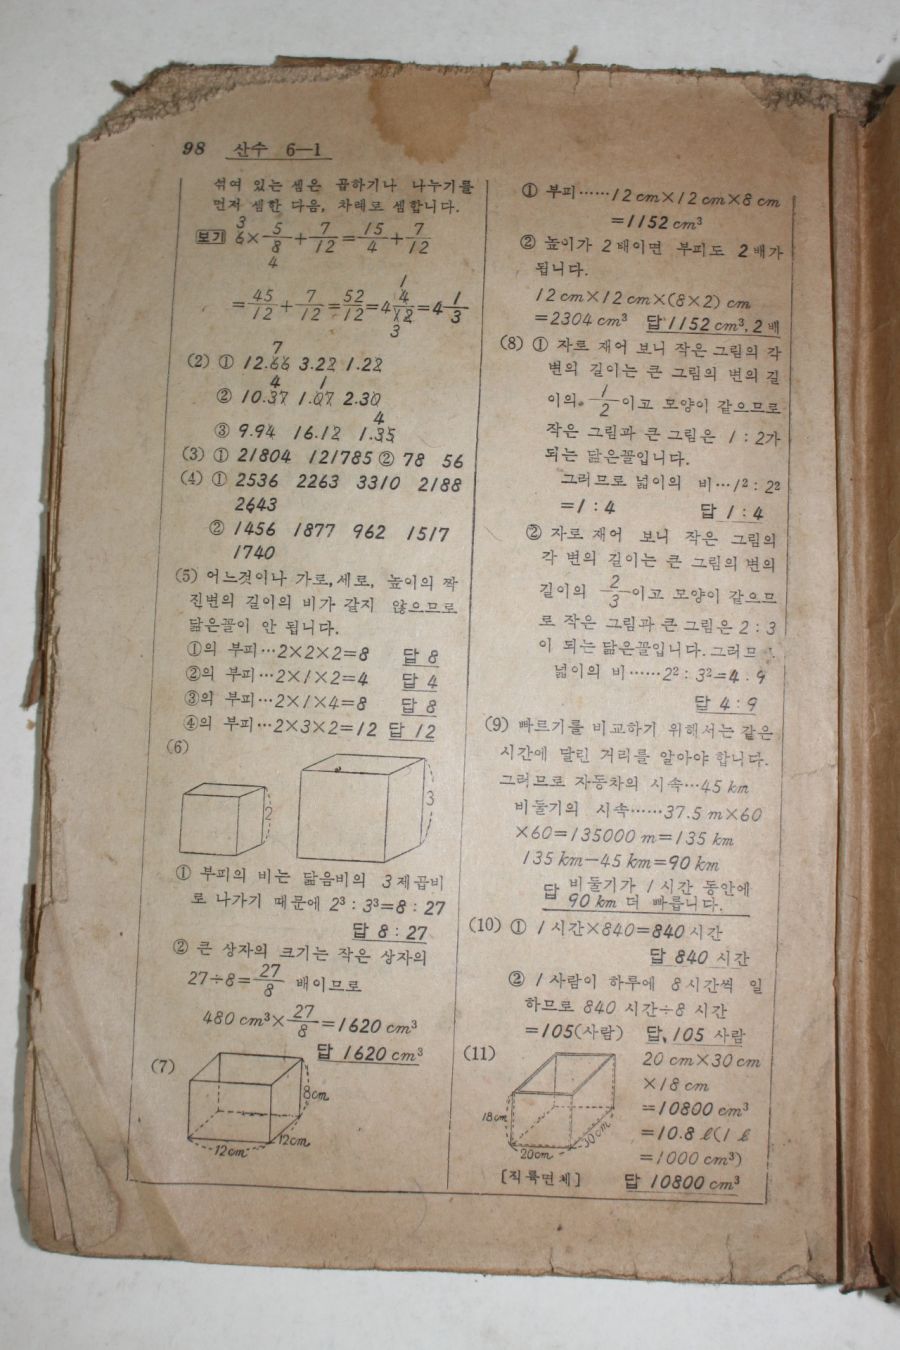 98 산수 6—1
섞여 있는 셈은 곱하기나 나누기를
먼저 셈한 다음, 차례로 셈합니다.
보기 6×5/8+7/12=15/4+7/12
3
4
=45/12+7/12=52/12=4 4/12=4 1/3
1
3
(2) ① 12.66 3.22 1.22
7
② 10.37 1.07 2.30
4 1
③ 9.94 16.12 1.35
4
(3) ① 21804 121785 ② 78 56
(4) ① 2536 2263 3310 2188
2643
② 1456 1877 962 1517
1740
(5) 어느것이나 가로, 세로, 높이의 짝
진변의 길이의 비가 같지 않으므로
닮은꼴이 안 됩니다.
①의 부피…2×2×2=8 답 8
②의 부피…2×1×2=4 답 4
③의 부피…2×1×4=8 답 8
④의 부피…2×3×2=12 답 12
(6)
2
3
① 부피의 비는 닮음비의 3제곱비
로 나가기 때문에 2³:3³=8:27
답 8:27
② 큰 상자의 크기는 작은 상자의
27÷8=27/8 배이므로
480cm³×27/8=1620cm³
답 1620cm³
(7)
8cm
12cm
12cm
① 부피……12cm×12cm×8cm
=1152cm³
② 높이가 2배이면 부피도 2배가
됩니다.
12cm×12cm×(8×2)cm
=2304cm³ 답 1152cm³, 2배
(8) ① 자로 재어 보니 작은 그림의 각
변의 길이는 큰 그림의 변의 길
이의 1/2이고 모양이 같으므로
작은 그림과 큰 그림은 1:2가
되는 닮은꼴입니다.
그러므로 넓이의 비…1²:2²
=1:4 답 1:4
② 자로 재어 보니 작은 그림의
각 변의 길이는 큰 그림의 변의
길이의 2/3이고 모양이 같으므
로 작은 그림과 큰 그림은 2:3
이 되는 닮은꼴입니다. 그러므
넓이의 비……2²:3²=4:9
답 4:9
(9) 빠르기를 비교하기 위해서는 같은
시간에 달린 거리를 알아야 합니다.
그러므로 자동차의 시속…45km
비둘기의 시속……37.5m×60
×60=135000m=135km
135km−45km=90km
답 비둘기가 1시간 동안에
90km 더 빠릅니다.
(10) ① 1시간×840=840시간
답 840시간
② 1사람이 하루에 8시간씩 일
하므로 840시간÷8시간
=105(사람) 답 105사람
(11)
18cm
20cm
30cm
[직륙면체]
20cm×30cm
×18cm
=10800cm³
=10.8ℓ(1ℓ
=1000cm³)
답 10800cm³